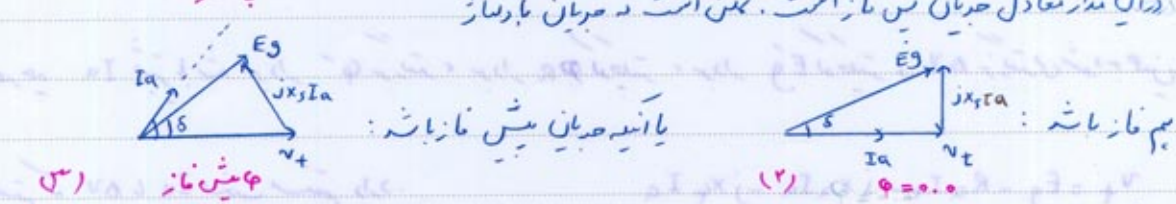 در این مدار معادل جریان پس فاز است. ممکن است که جریان با ولتاژ
هم فاز باشد :
Eg
jxsIa
δ
Ia
Vt
(۲) φ=0.0
یا آنکه جریان پیش فاز باشد :
Eg
Ia
jxsIa
δ
Vt
(۳) φ پیش فاز